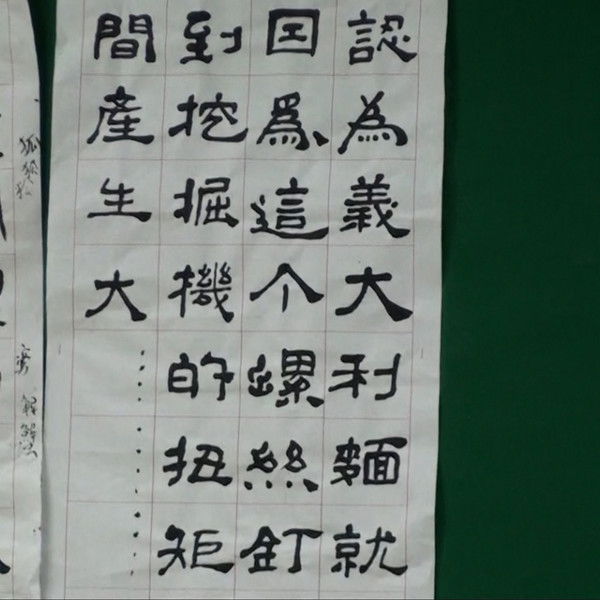 認為義大利麵就
因爲這个螺絲釘
到挖掘機的扭矩
間產生大……